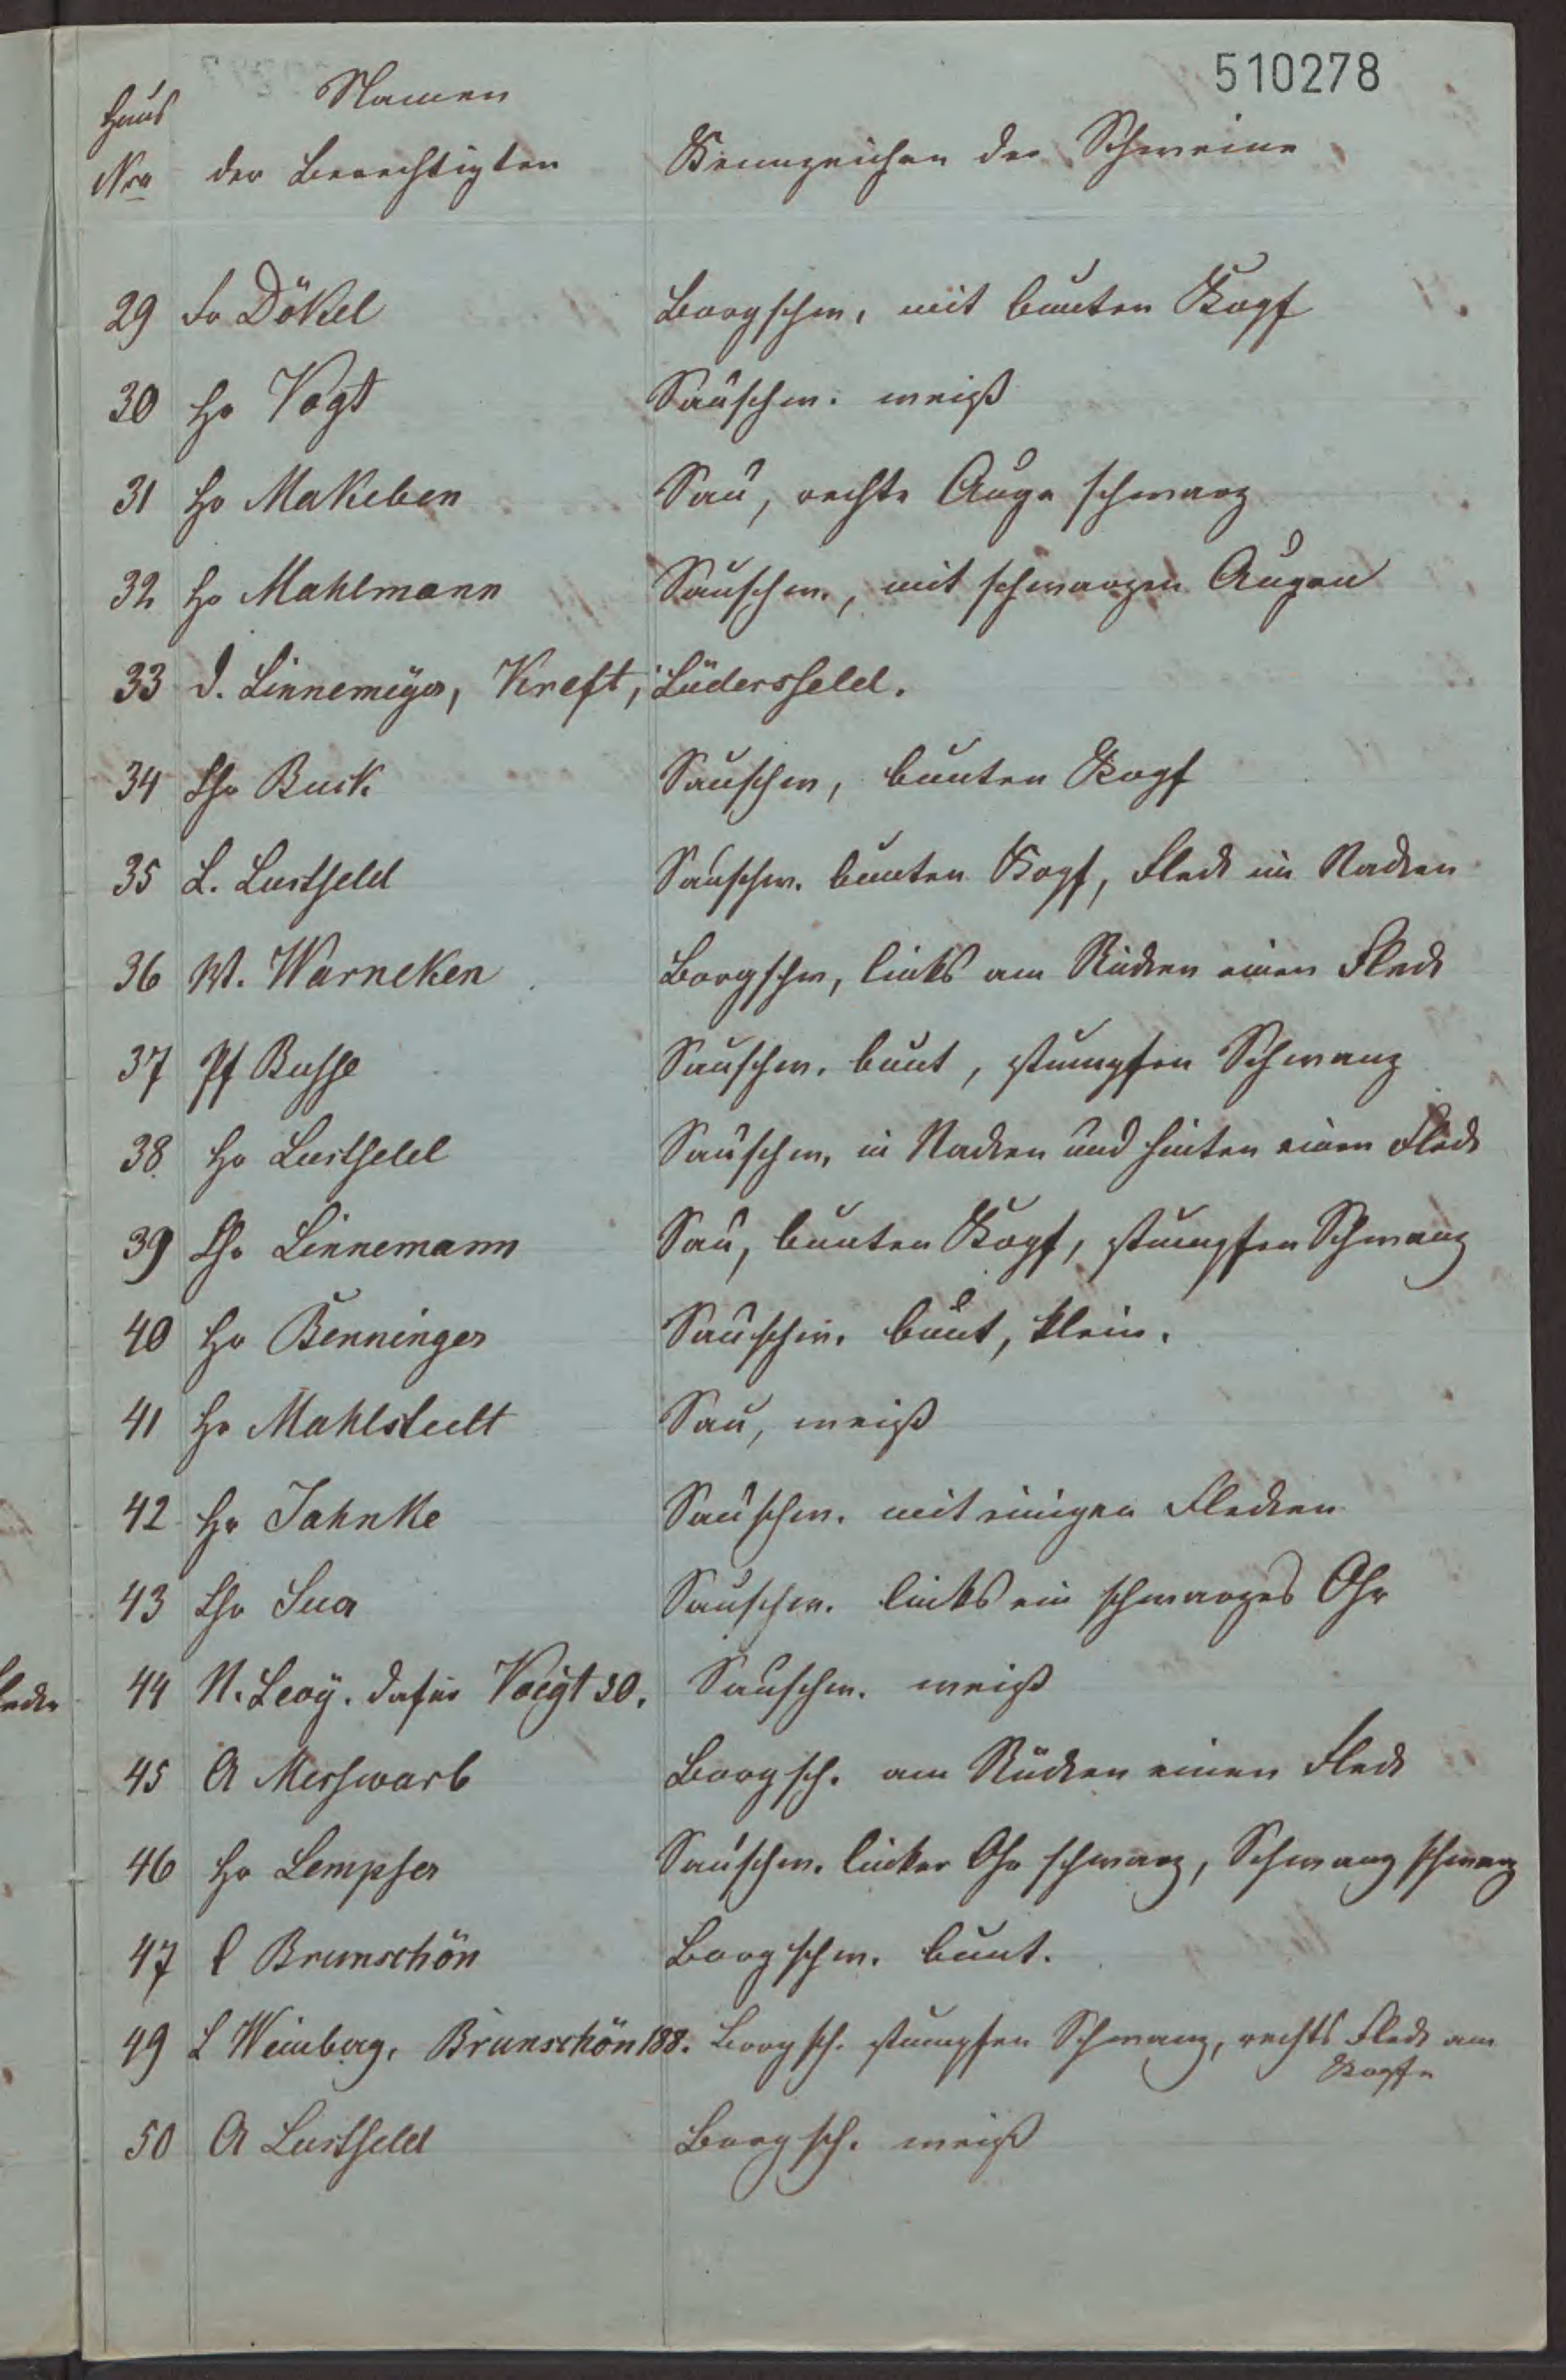 510278
Haus Namen
Nro der Berechtigten Kennzeichen der Schweine
29 Fr Dökel Borgschw. mit bunten Kopf
30 Hr Vogt Sauschw. weiß
31 Hr Makeben Sau, rechte Auge schwarz
32 Hr Mahlmann Sauschw., mit schwarzen Augen
33 D. Linnemeÿer, Kreft, Lüdersfeld.
34 Chr Buck Sauschw, bunten Kopf
35 L. Lustfeld Sauschw. bunten Kopf, Fleck im Nacken
36 W. Warneken Borgschw, links am Rücken einen Fleck
37 Pf Busse Sauschw. bunt, stumpfen Schwanz
38. Hr Lustfeld Sauschw, in Nacken und hinten einen Fleck
39 Chr Linnemann Sau, bunten Kopf, stumpfen Schwanz
40 Hr Benninger Sauschw. bunt, klein.
41 Hr Mahlstedt Sau, weiß
42 Hr Jahnke Sauschw. mit einigen Flecken
43 Chr Sua Sauschw. links ein schwarzes Ohr
44 N. Levÿ. dafür Voigt 30. Sauschw. weiß
45 A Merswarb Borgsch. am Rücken einen Fleck
46 Hr Lempfer Sauschw. linker Ohr schwarz, Schwanz schwarz
47 C Brunschön Borgschw. bunt.
49 L Weinberg, Brunschön 188. Borgsch. stumpfen Schwanz, rechts Fleck am
Kopfe
50 A Lustfeld Borgsch. weiß